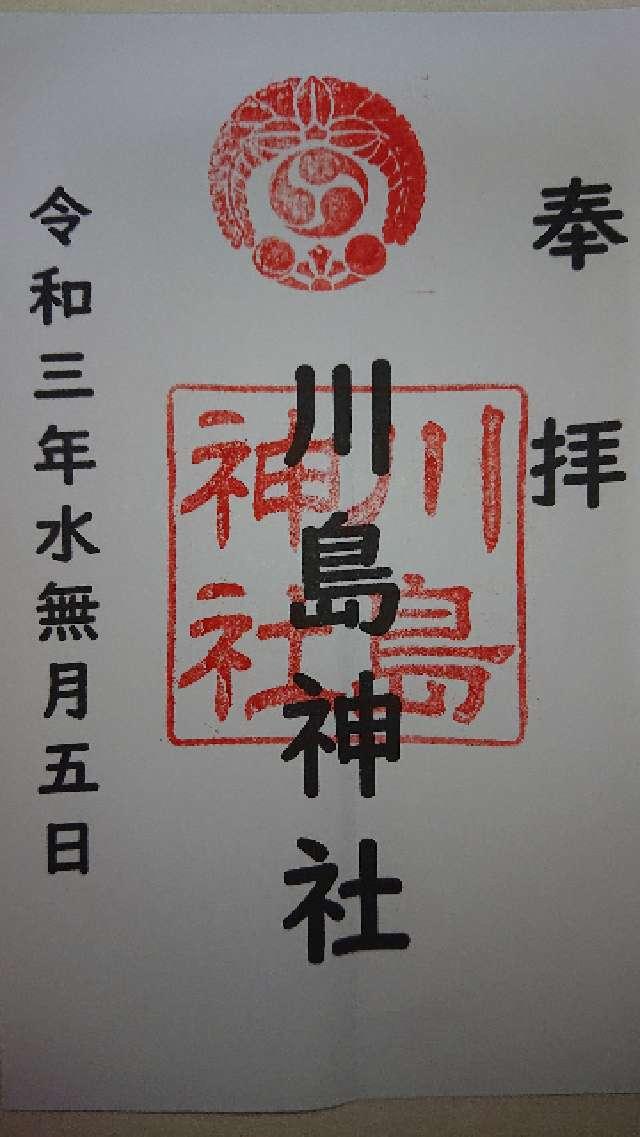 奉拝
川島神社
川島
神社
令和三年水無月五日